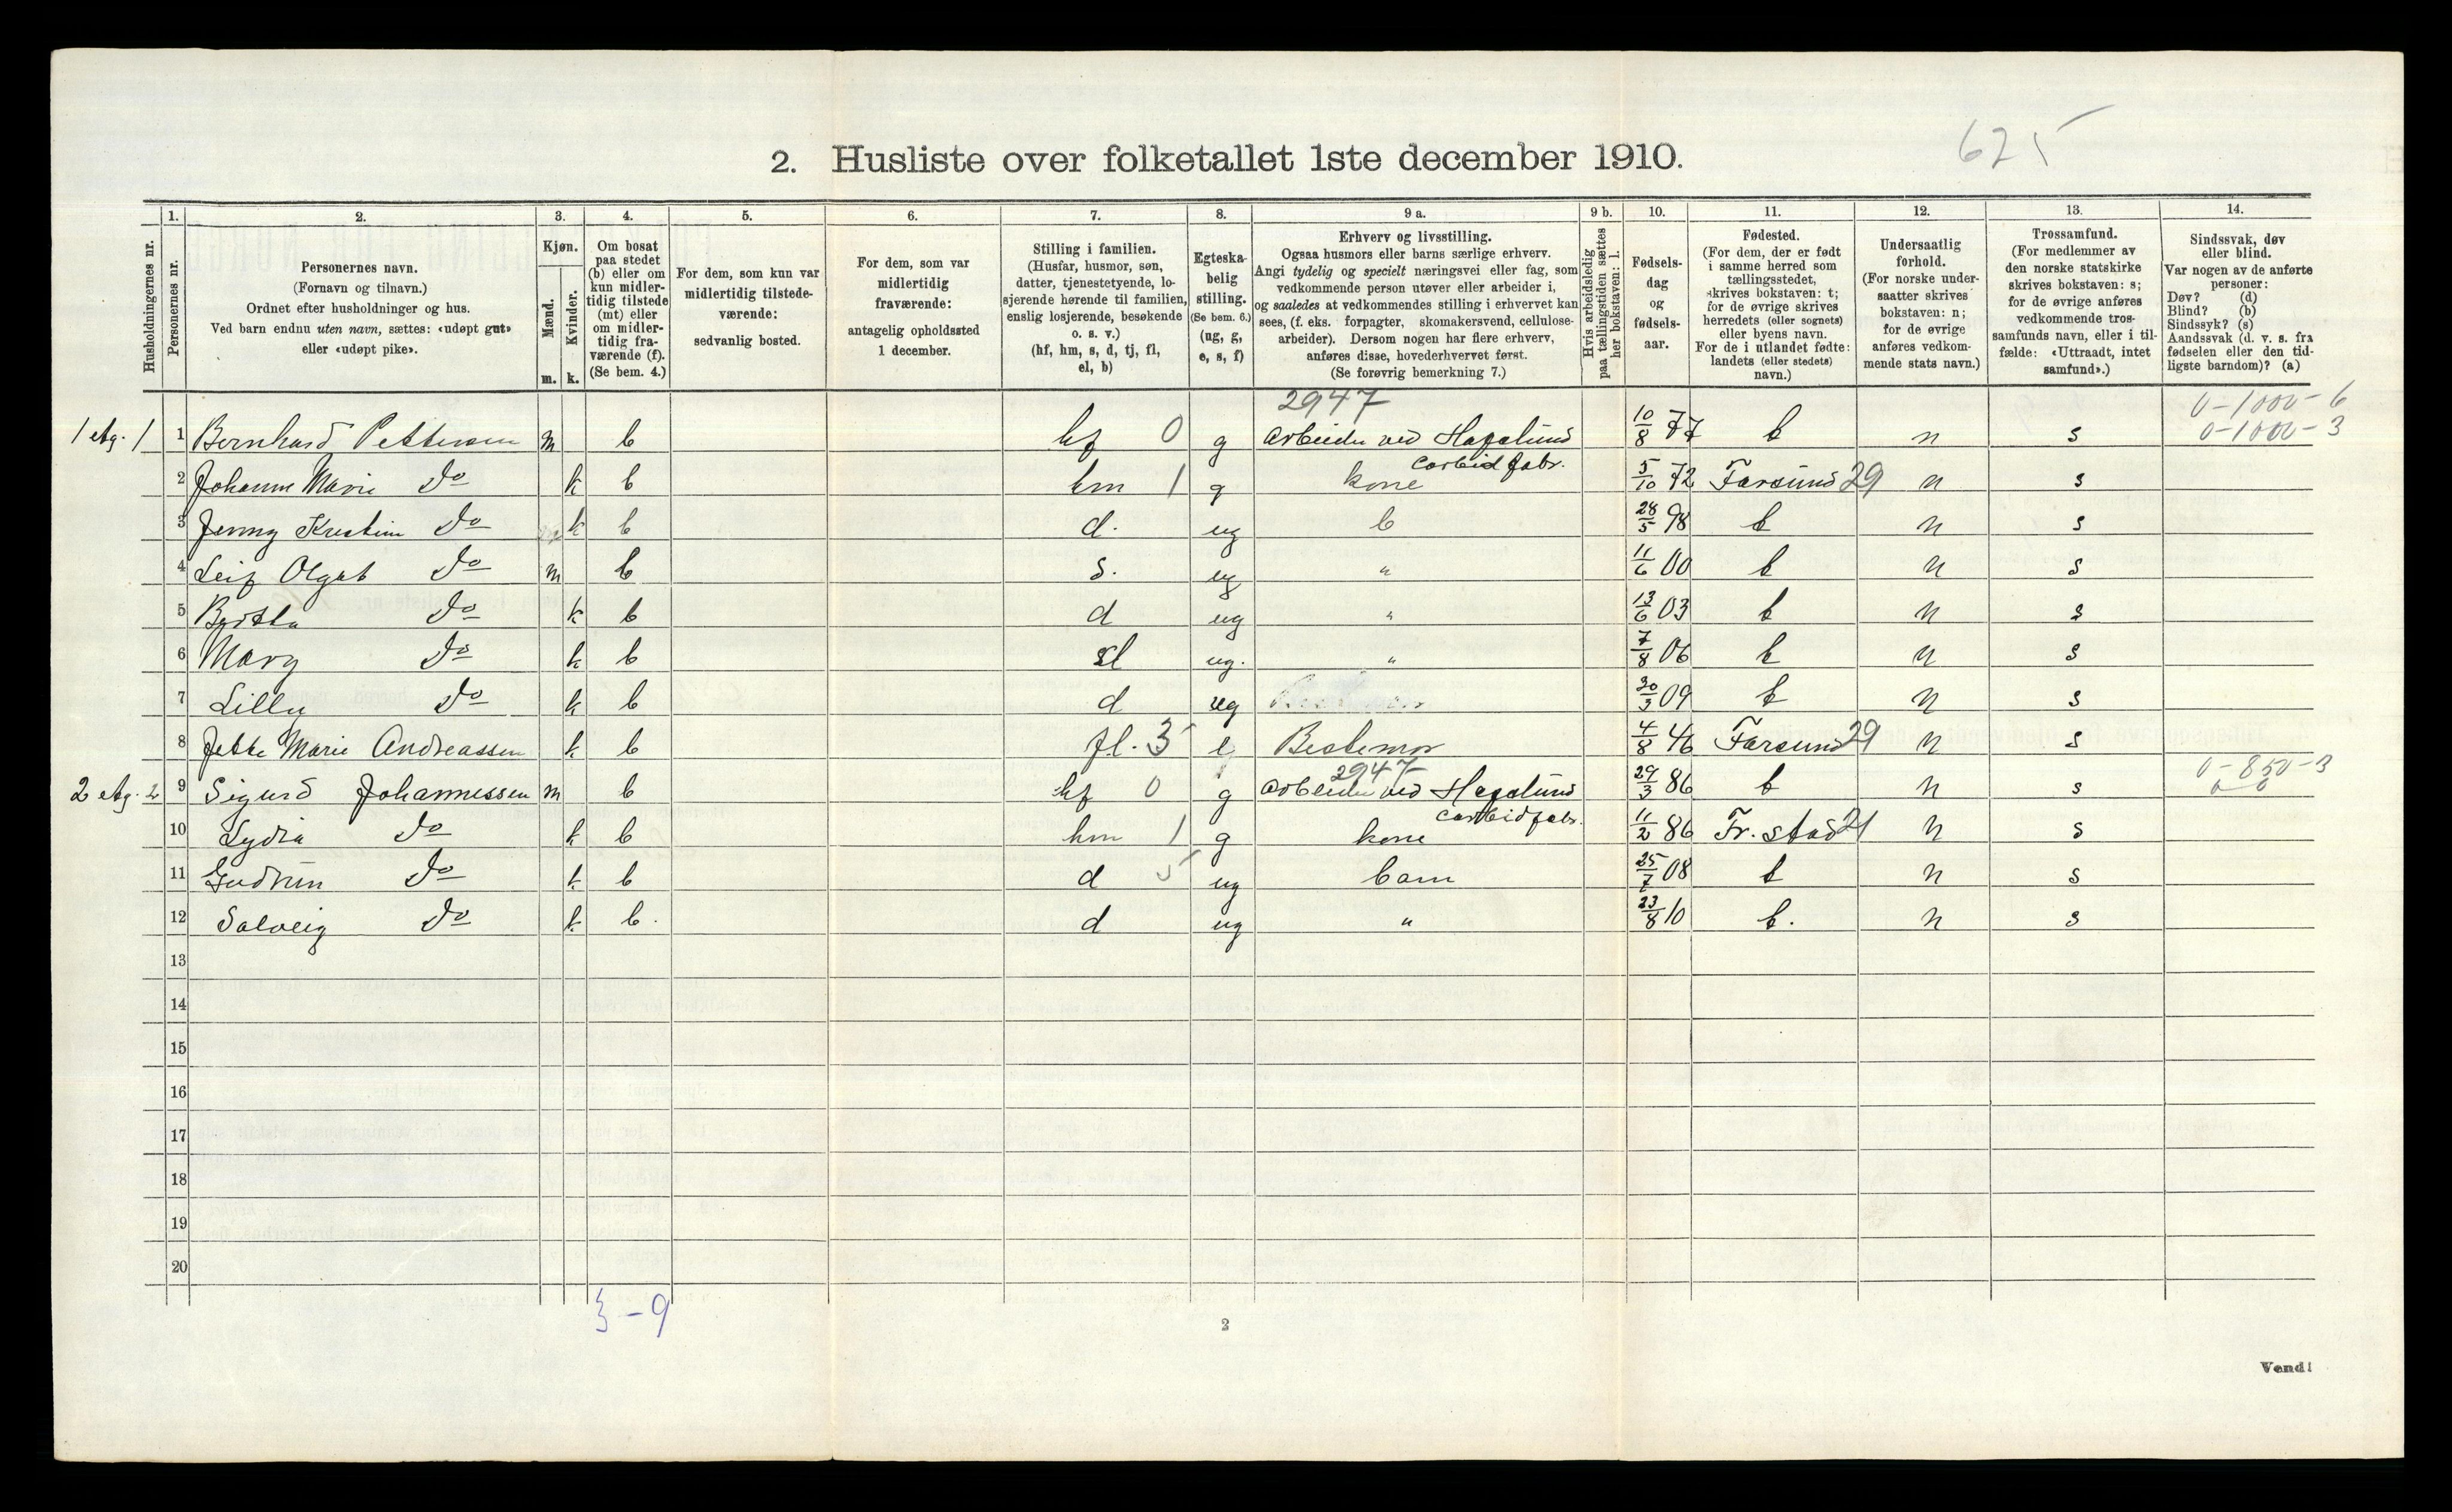 2. Husliste over folketallet 1ste december 1910.
625
1. 2. 3. 4. 5. 6. 7. 8. 9 a. 9 b. 10. 11. 12. 13. 14.
Husholdningernes nr.
Personernes nr.
Personernes navn.
(Fornavn og tilnavn.)
Ordnet efter husholdninger og hus.
Ved barn endnu uten navn, sættes: «udøpt gut»
eller «udøpt pike».
Kjøn.
Mænd.
Kvinder.
m. k.
Om bosat
paa stedet
(b) eller om
kun midler-
tidig tilstede
(mt) eller
om midler-
tidig fra-
værende (f).
(Se bem. 4.)
For dem, som kun var
midlertidig tilstede-
værende:
sedvanlig bosted.
For dem, som var
midlertidig
fraværende:
antagelig opholdssted
1 december.
Stilling i familien.
(Husfar, husmor, søn,
datter, tjenestetyende, lo-
sjerende hørende til familien,
enslig losjerende, besøkende
o. s. v.)
(hf, hm, s, d, tj, fl,
el, b)
Egteska-
belig
stilling.
(Se bem. 6.)
(ug, g,
e, s, f)
Erhverv og livsstilling.
Ogsaa husmors eller barns særlige erhverv.
Angi tydelig og specielt næringsvei eller fag, som
vedkommende person utøver eller arbeider i,
og saaledes at vedkommendes stilling i erhvervet kan
sees, (f. eks. forpagter, skomakersvend, cellulose-
arbeider). Dersom nogen har flere erhverv,
anføres disse, hovederhvervet først.
(Se forøvrig bemerkning 7.)
Hvis arbeidsledig
paa tællingstiden sættes
her bokstaven: l.
Fødsels-
dag
og
fødsels-
aar.
Fødested.
(For dem, der er født
i samme herred som
tællingsstedet,
skrives bokstaven: t;
for de øvrige skrives
herredets (eller sognets)
eller byens navn.
For de i utlandet fødte:
landets (eller stedets)
navn.)
Undersaatlig
forhold.
(For norske under-
saatter skrives
bokstaven: n;
for de øvrige
anføres vedkom-
mende stats navn.)
Trossamfund.
(For medlemmer av
den norske statskirke
skrives bokstaven: s;
for de øvrige anføres
vedkommende tros-
samfunds navn, eller i til-
fælde: «Uttraadt, intet
samfund».)
Sindssvak, døv
eller blind.
Var nogen av de anførte
personer:
Døv? (d)
Blind? (b)
Sindssyk? (s)
Aandssvak (d. v. s. fra
fødselen eller den tid-
ligste barndom)? (a)
2947 0-1000-6
1 etg. 1 1 Bernhard Pettersen m b hf 0 g arbeider ved Hafslund 10/8 77 t n s 0-1000-3
carbidfabr.
2 Johanne Marie Do k b hm 1 g kone 5/10 72 Farsund 29 n s
3 Jenny Kristine Do k b d. ug b 28/5 98 t n s
4 Leif Olgat Do m b s. ug " 11/6 00 t n s
5 Bertha Do k b d ug " 13/6 03 t n s
6 Mary Do k b d ug. " 7/8 06 t n s
7 Lilly Do k b d ug 30/3 09 t n s
8 Jette Marie Andreassen k b fl. 35 e Bestemor 4/8 46 Farsund 29 n s
2947 0-850-3
2 etg. 2 9 Sigurd Johannessen m b hf 0 g arbeider ved Hafslund 29/3 86 t n s
carbidfabr.
10 Lydia Do k b hm 1 g kone 11/2 86 Fr. stad 21 n s
11 Gudrun Do k b d 5 ug barn 25/7 08 t n s
12 Solveig Do k b. d ug " 23/8 10 t. n s
13
14
15
16
17
18
19
20
3-9
2
Vend!